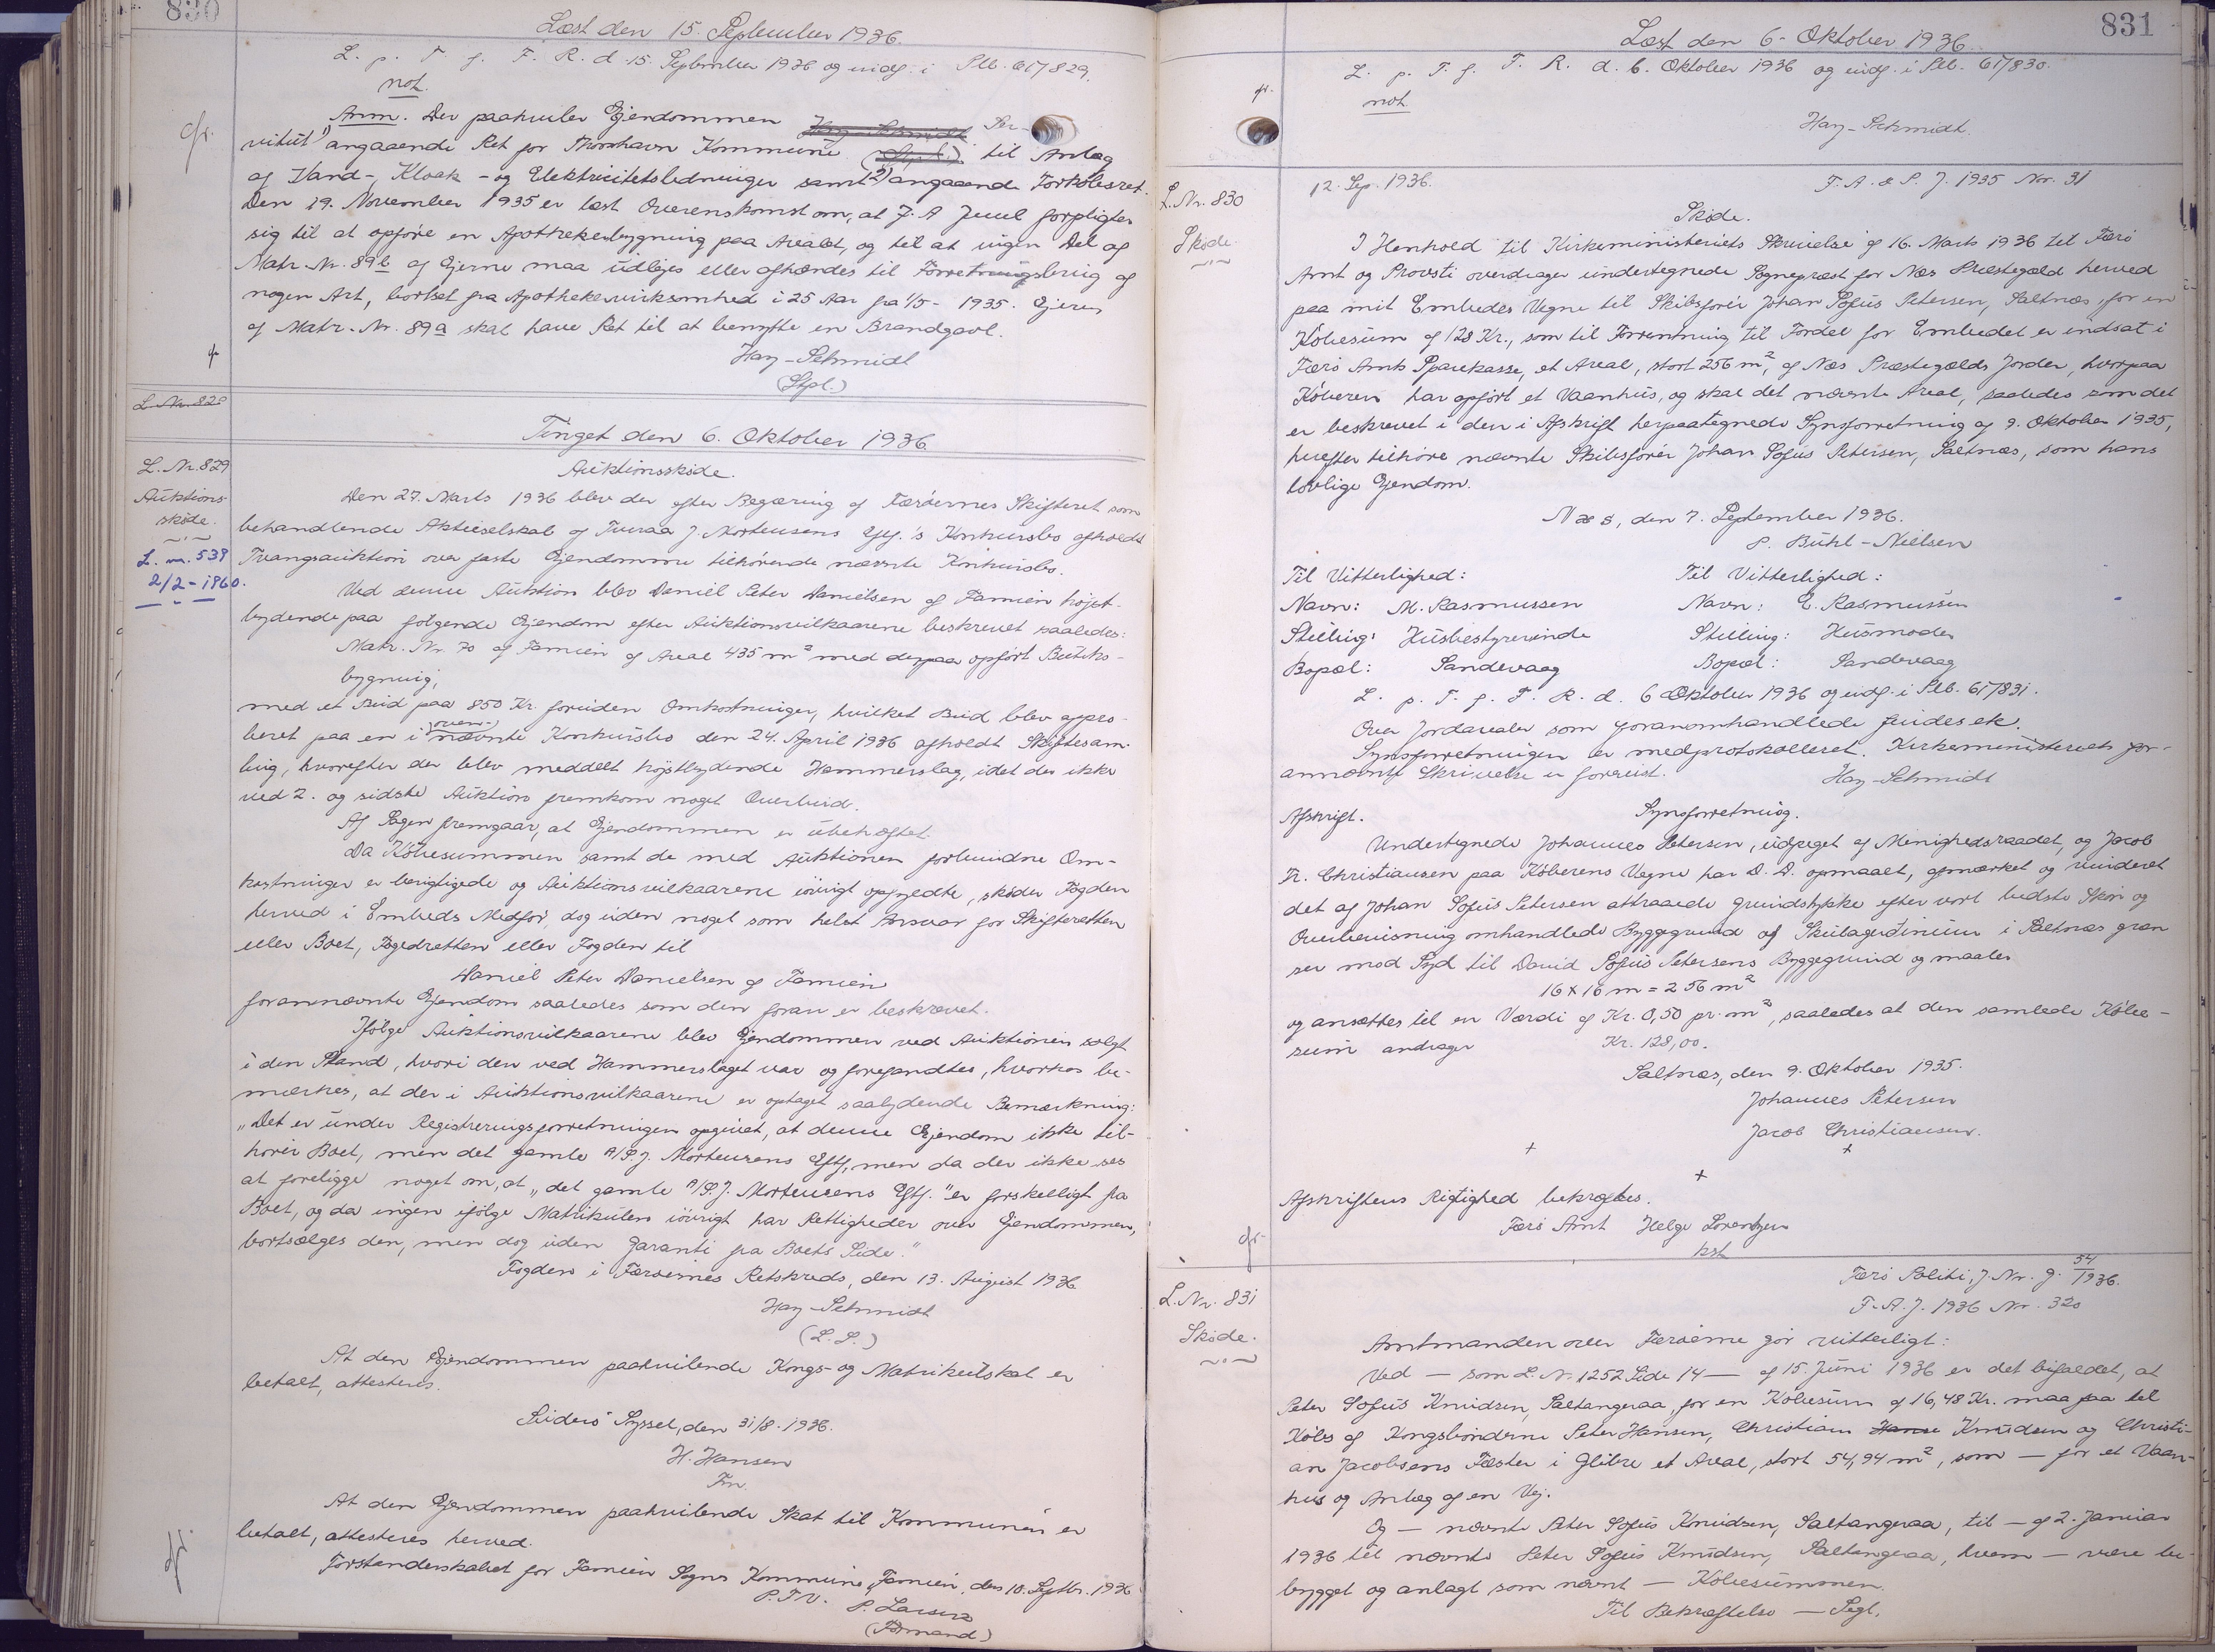 830
Læst den 15. September 1936.
L. p. T. f. F. R. d. 15. September 1936 og indf. i Slb. 61/829.
not.
cfr.
Anm. Der paahviler Ejendommen Ser-
vitut 1) angaaende Ret for Thorshavn Kommune til Anlæg
af Vand-, Kloak- og Elektricitetsledninger samt 2) angaaende Forkøbsret.
Den 19. November 1935 er læst Overenskomst om, at J. A. Juul forpligter
sig til at opføre en Apothekerbygning paa Arealet, og til at ingen Del af
Matr. Nr. 89b af Ejerne maa udlejes eller afhændes til Forretningsbrug af
nogen Art, bortset fra Apothekervirksomhed i 25 Aar fra 1/5 - 1935. Ejeren
af Matr. Nr. 89a skal have Ret til at benytte en Brandgavl.
Hay-Schmidt
(Stpl.)
L. Nr. 829
Tinget den 6. Oktober 1936.
L. Nr. 829
Auktions-
skøde.
L. nr. 539
2/2 - 1960.
Auktionsskøde.
Den 27. Marts 1936 blev der efter Begæring af Færøernes Skifteret som
behandlende Aktieselskab af Tveraa J. Mortensens Eftf.'s Konkursbo afholdt
Tvangsauktion over faste Ejendomme tilhørende nævnte Konkursbo.
Ved denne Auktion blev Daniel Peter Danielsen af Famien højst-
bydende paa følgende Ejendom efter Auktionsvilkaarene beskrevet saaledes:
Matr. Nr. 70 af Famien af Areal 435 m2 med derpaa opført Butiks-
bygning,
med et Bud paa 850 Kr. foruden Omkostninger, hvilket Bud blev appro-
beret paa en i ovennævnte Konkursbo den 24. April 1936 afholdt Skiftesam-
ling, hvorefter der blev meddelt højstbydende Hammerslag, idet der ikke
ved 2. og sidste Auktion fremkom noget Overbud.
Af Sagen fremgaar, at Ejendommen er ubehæftet.
Da Købesummen samt de med Auktionen forbundne Om-
kostninger er berigtigede og Auktionsvilkaarene iøvrigt opfyldte, skøder Fogden
herved i Embeds Medfør, dog uden noget som helst Ansvar for Skifteretten
eller Boet, Fogedretten eller Fogden til
Daniel Peter Danielsen af Famien
forannævnte Ejendom saaledes som den foran er beskrevet.
Ifølge Auktionsvilkaarene blev Ejendommen ved Auktionen solgt
i den Stand, hvori den ved Hammerslaget var og forefandtes, hvorhos be-
mærkes, at der i Auktionsvilkaarene er optaget saalydende Bemærkning:
„Det er under Registreringsforretningen opgivet, at denne Ejendom ikke til-
hører Boet, men det gamle A/S. J. Mortensens Eftf., men da der ikke ses
at foreligge noget om, at „det gamle A/S. J. Mortensens Eftf." er forskelligt fra
Boet, og da ingen ifølge Matrikulen iøvrigt har Rettigheder over Ejendommen,
bortsælges den, men dog uden Garanti fra Boets Side."
Fogden i Færøernes Retskreds, den 13. August 1936
Hay-Schmidt
(L. S.)
At den Ejendommen paahvilende Kongs- og Matrikulskat er
betalt, attesteres.
Suderø Syssel, den 31/8. 1936.
H. Hansen
Fm.
At den Ejendommen paahvilende Skat til Kommunen er
betalt, attesteres herved.
cfr.
Forstanderskabet for Famien Sogns Kommune, Famien, den 10. Septbr. 1936
P. F. V. P. Larsen
(Formand)
831
Læst den 6. Oktober 1936.
L. p. T. f. F. R. d. 6. Oktober 1936 og indf. i Slb. 61/830.
cfr.
not.
Hay-Schmidt.
L. Nr. 830
Skøde
12. Sep. 1936. F. A. & P. J. 1935 Nr. 31
Skøde.
I Henhold til Kirkeministeriets Skrivelse af 16. Marts 1936 til Færø
Amt og Provsti overdrager undertegnede Sognepræst for Næs Præstegæld herved
paa mit Embedes Vegne til Skibsfører Johan Sofus Petersen, Saltnæs, for en
Købesum af 128 Kr., som til Forrentning til Fordel for Embedet er indsat i
Færø Amts Sparekasse, et Areal, stort 256 m2, af Næs Præstegælds Jorder, hvorpaa
Køberen har opført et Vaanhus, og skal det nævnte Areal, saaledes som det
er beskrevet i den i Afskrift herpaategnede Synsforretning af 9. Oktober 1935,
herefter tilhøre nævnte Skibsfører Johan Sofus Petersen, Saltnæs, som hans
lovlige Ejendom.
Næs, den 7. September 1936.
P. Bühl-Nielsen
Til Vitterlighed: Til Vitterlighed:
Navn: M. Rasmussen Navn: E. Rasmussen
Stilling: Husbestyrerinde Stilling: Husmoder
Bopæl: Sandevaag Bopæl: Sandevaag
L. p. T. f. F. R. d. 6 Oktober 1936 og indf. i Slb. 61/831.
Over Jordarealer som foranomhandlede findes ek.
Synsforretningen er medprotokolleret. Kirkeministeriets for-
annævnte Skrivelse er forevist. Hay-Schmidt
Afskrift. Synsforretning.
Undertegnede Johannes Petersen, udpeget af Menighedsraadet, og Jacob
Fr. Christiansen paa Køberens Vegne har D. D. opmaalt, afmærket og vurderet
det af Johan Sofus Petersen attraaede Grundstykke efter vort bedste Skøn og
Overbevisning omhandlede Byggegrund af Skulagerdinum i Saltnæs græn
ser mod Syd til David Sofus Petersens Byggegrund og maaler
16 x 16 m = 256 m2
og ansættes til en Værdi af Kr. 0,50 pr. m2, saaledes at den samlede Købe-
sum andrager Kr. 128,00.
Saltnæs, den 9. Oktober 1935.
Johannes Petersen
Jacob Christiansen.
+ + +
Afskriftens Rigtighed bekræftes.
Færø Amt Helge Lorentzen
kst
cfr.
L. Nr. 831
Skøde.
Færø Politi, J. Nr. g. 54/1936.
F. A. J. 1936 Nr. 320
Amtmanden over Færøerne gør vitterligt:
Ved — som L. Nr. 1252 Side 14 — af 15. Juni 1936 er det bifaldet, at
Peter Sofus Knudsen, Saltangeraa, for en Købesum af 16,48 Kr. maa faa til
Købs af Kongsbønderne Peter Hansen, Christian Hanse Knudsen og Christi-
an Jacobsens Fæster i Glibre et Areal, stort 54,94 m2, som — for et Vaan-
hus og Anlæg af en Vej.
Og — nævnte Peter Sofus Knudsen, Saltangeraa, til — af 2. Januar
1936 til nævnte Peter Sofus Knudsen, Saltangeraa, hvem — være be-
bygget og anlagt som nævnt — Købesummen.
Til Bekræftelse — Segl.